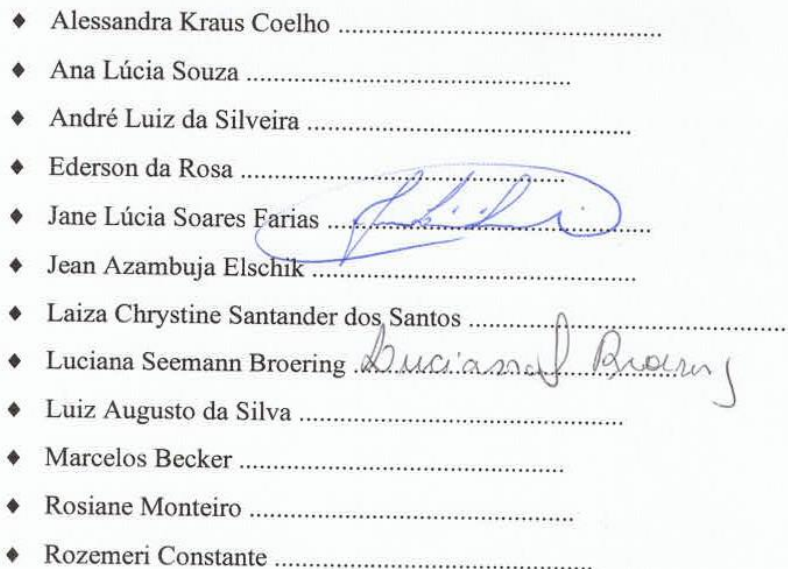 ♦ Alessandra Kraus Coelho ................................................................
♦ Ana Lúcia Souza ................................................................
♦ André Luiz da Silveira ................................................................
♦ Ederson da Rosa ................................................................
♦ Jane Lúcia Soares Farias ................................................................
♦ Jean Azambuja Elschik ................................................................
♦ Laiza Chrystine Santander dos Santos ................................................................
♦ Luciana Seemann Broering Luciana S Broering
♦ Luiz Augusto da Silva ................................................................
♦ Marcelos Becker ................................................................
♦ Rosiane Monteiro ................................................................
♦ Rozemeri Constante ................................................................